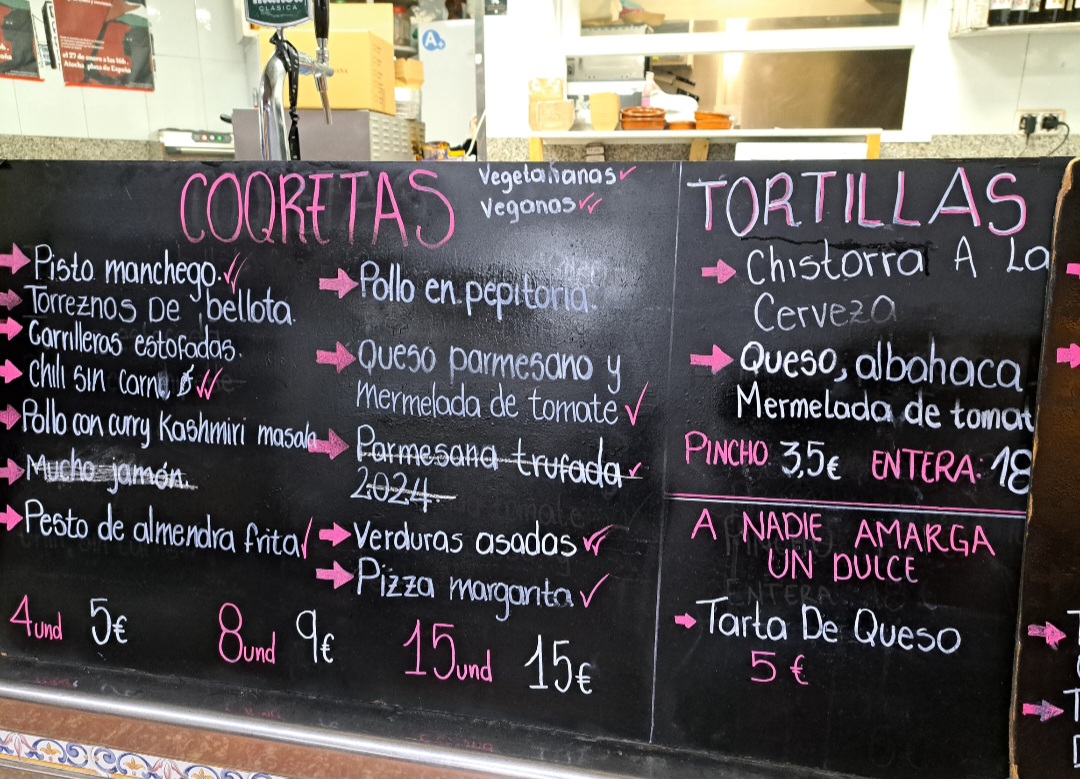 CLASICA
el 27 de enero a las 16h.
Atocha plaza de España
A+
COQRETAS
Vegetarianas✓
Veganas✓✓
Pisto manchego.✓
Torreznos De bellota.
Carrilleras estofadas.
Chili sin carne ✓✓
Pollo con curry Kashmiri masala
Mucho jamón.
Pesto de almendra frita✓
Pollo en pepitoria.
Queso parmesano y
mermelada de tomate✓
Parmesana trufada✓
2024.
Verduras asadas✓✓
Pizza margarita✓
4und 5€ 8und 9€ 15und 15€
TORTILLAS
Chistorra A La
Cerveza
Queso, albahaca
Mermelada de tomat
PINCHO 3,5€ ENTERA: 18
A NADIE AMARGA
UN DULCE
Tarta De Queso
5€